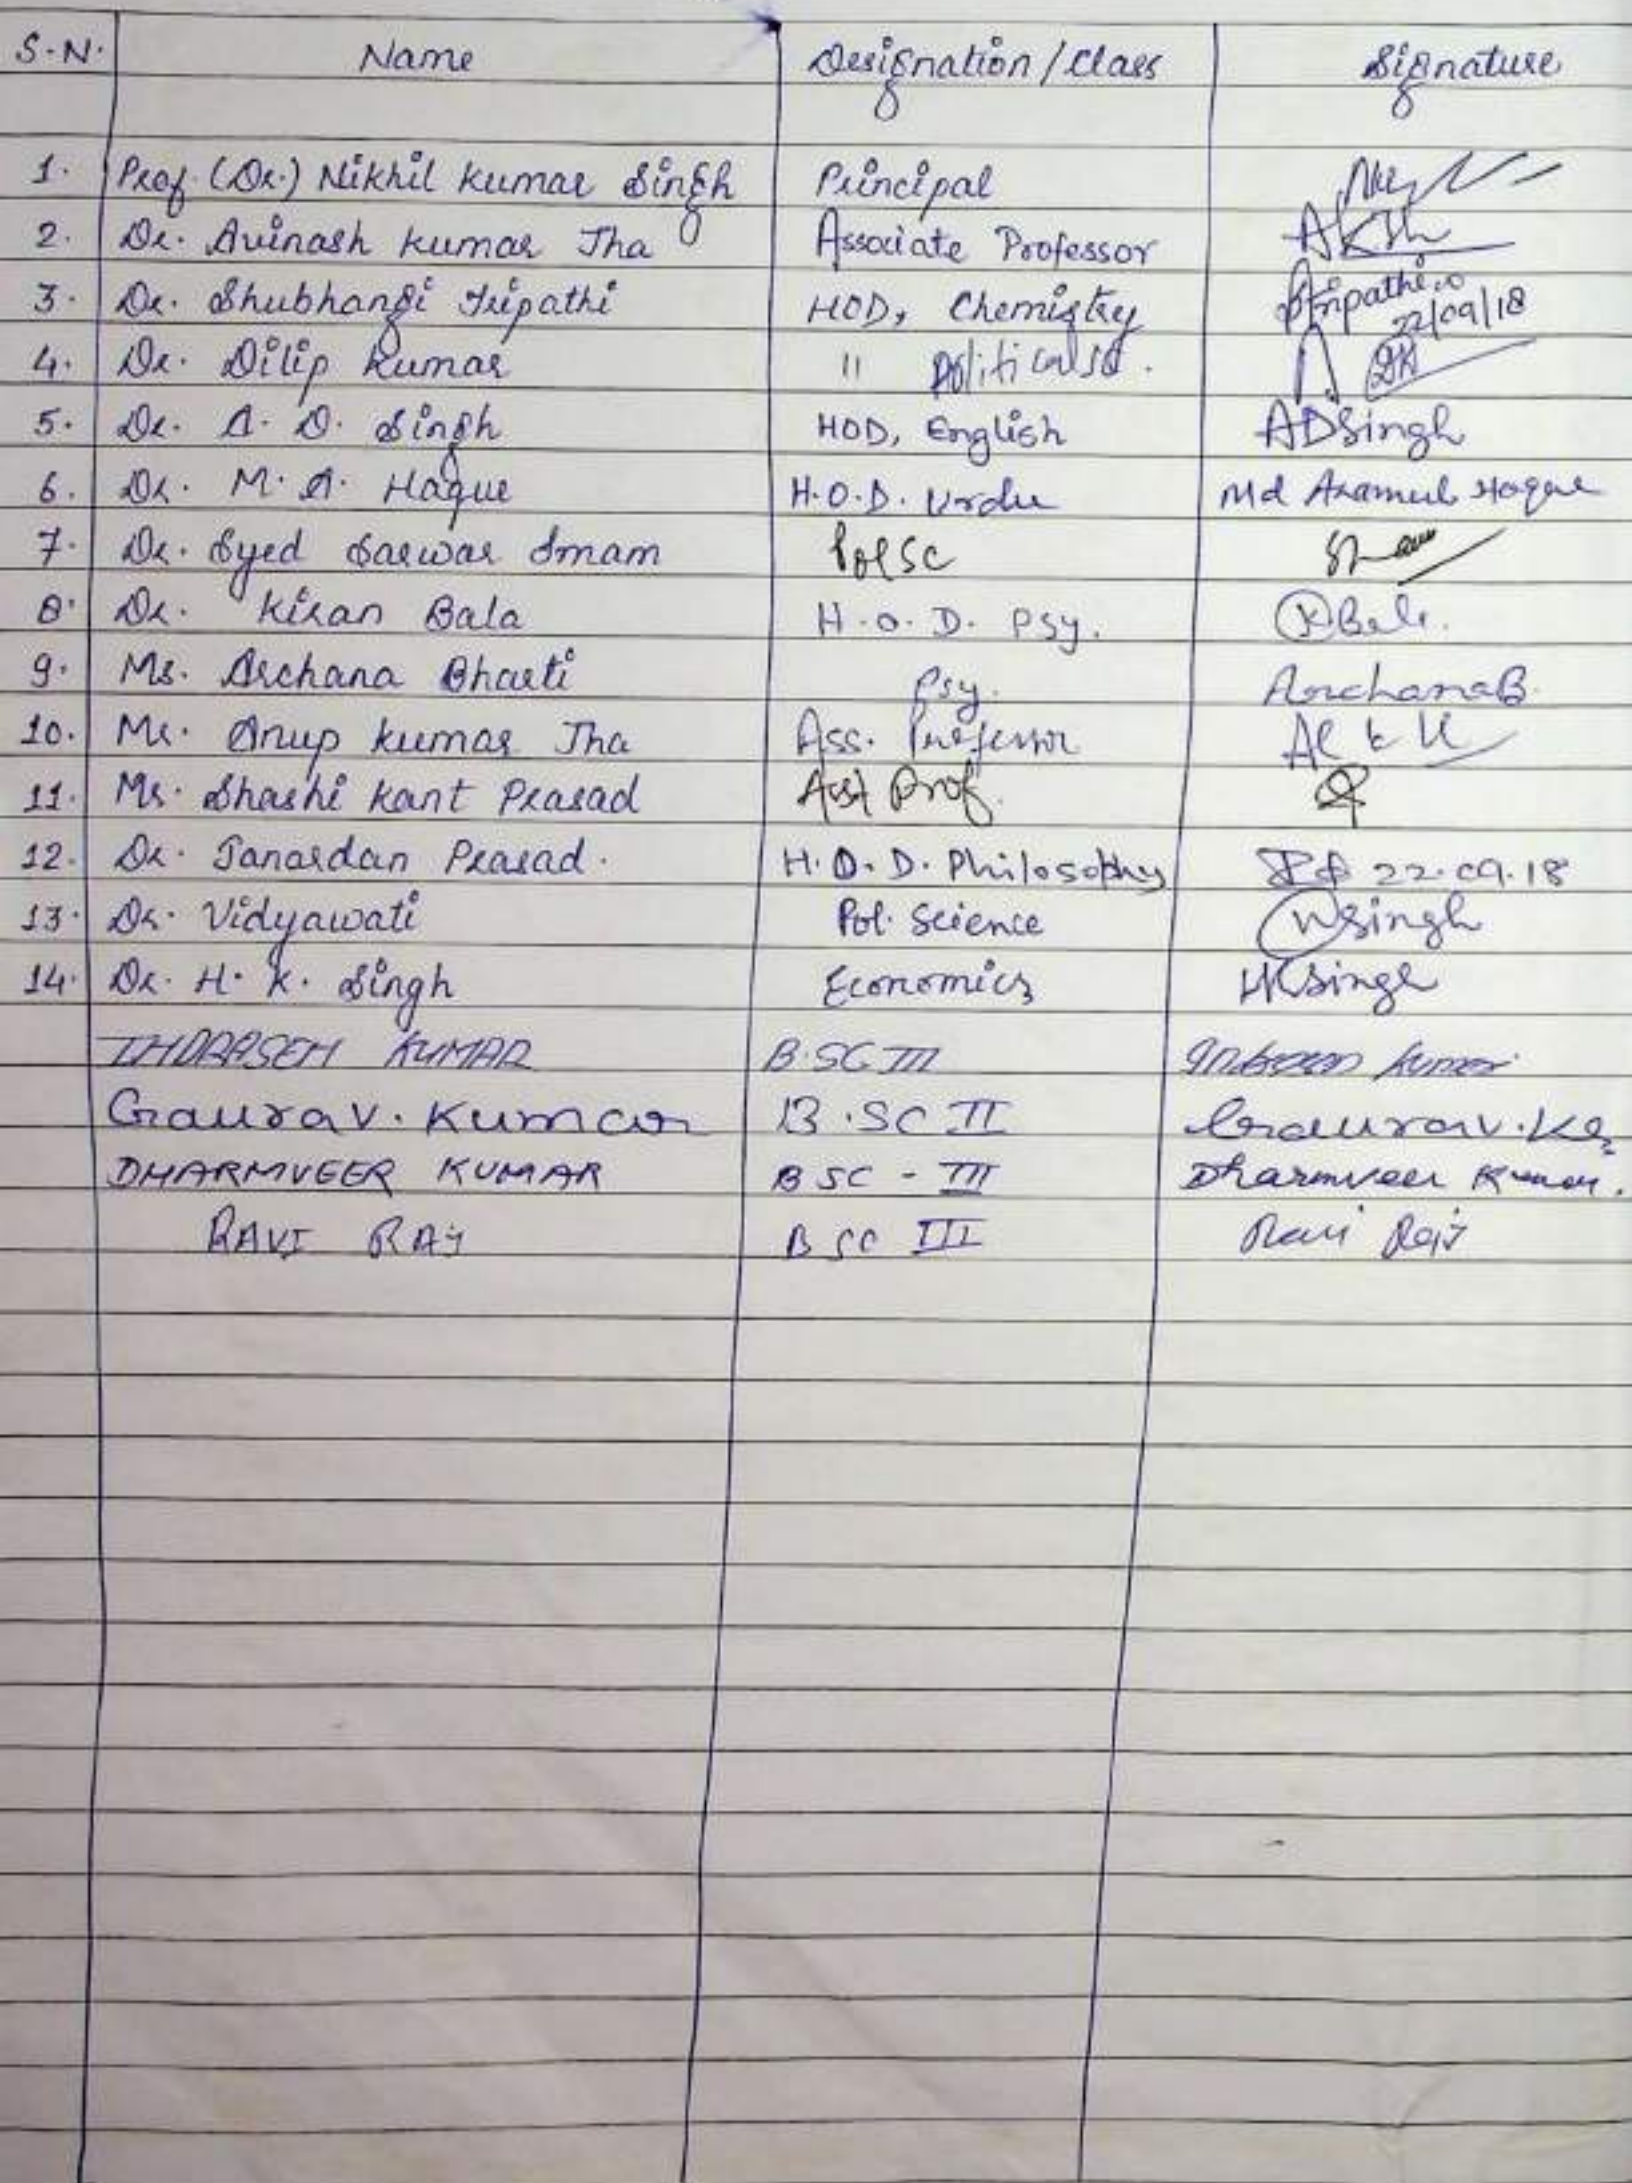 S.N. Name Designation/Class Signature
1. Prof. (Dr.) Nikhil Kumar Singh Principal
2. Dr. Avinash Kumar Jha Associate Professor
3. Dr. Shubhangi Tripathi HOD, Chemistry Tripathi 22/09/18
4. Dr. Dilip Kumar " Political Sc. DK
5. Dr. A. D. Singh HOD, English ADSingh
6. Dr. M. A. Haque H.O.D. Urdu Md Haque
7. Dr. Syed Sarwar Imam Pol Sc
8. Dr. Kiran Bala H.O.D. Psy. KBala
9. Ms. Archana Bharti Psy. ArchanaB.
10. Mr. Anup Kumar Jha Ass. Professor
11. Mr. Shashi Kant Prasad Asst Prof.
12. Dr. Janardan Prasad. H.O.D. Philosophy 22.09.18
13. Dr. Vidyawati Pol. Science Singh
14. Dr. H. K. Singh Economics HKSingh
KUMAR B.SC III Kumar
Gaurav. Kumar B.SC II Gaurav.Kr
DHARMVEER KUMAR BSC - III Dharmveer Kumar.
RAVI RAJ BSC III Ravi Raj